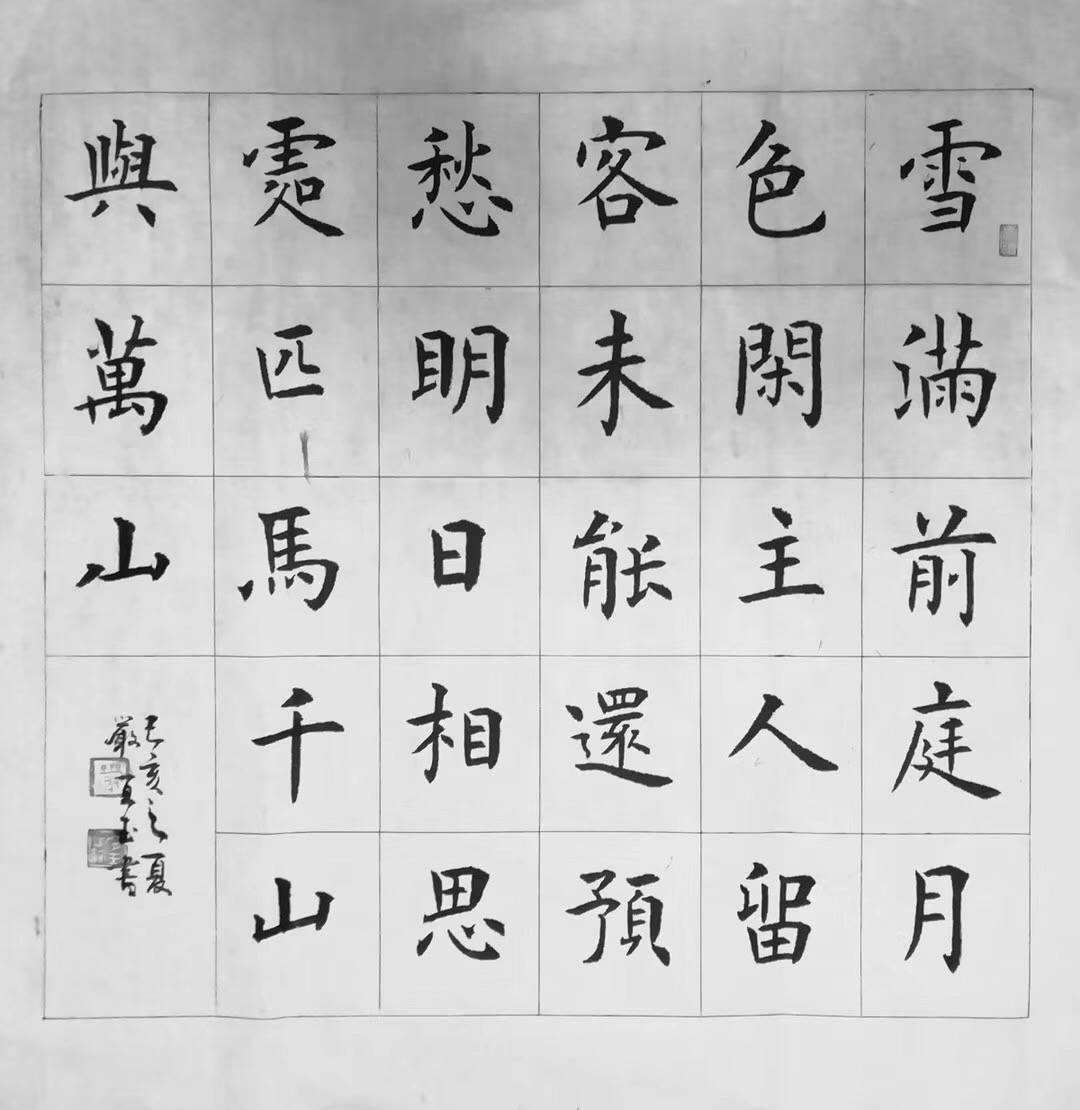 雪滿前庭月
色閑主人留
客未能還預
愁明日相思
處匹馬千山
與萬山
己亥之夏
嚴玉書